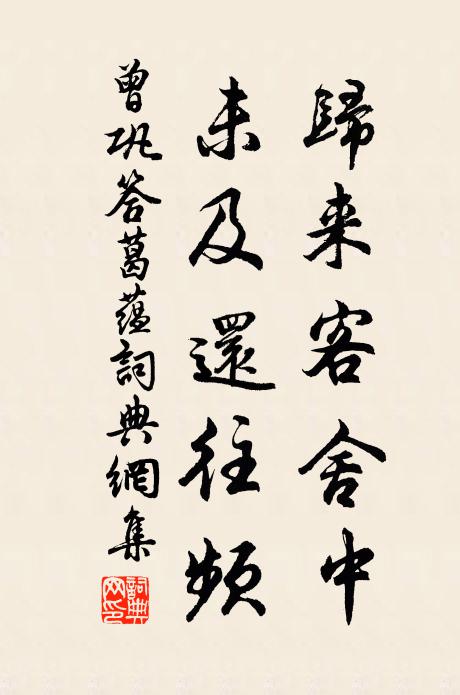 歸来客舍中
未及還往頻
曾巩答葛蕴詞典網集
詞典網印